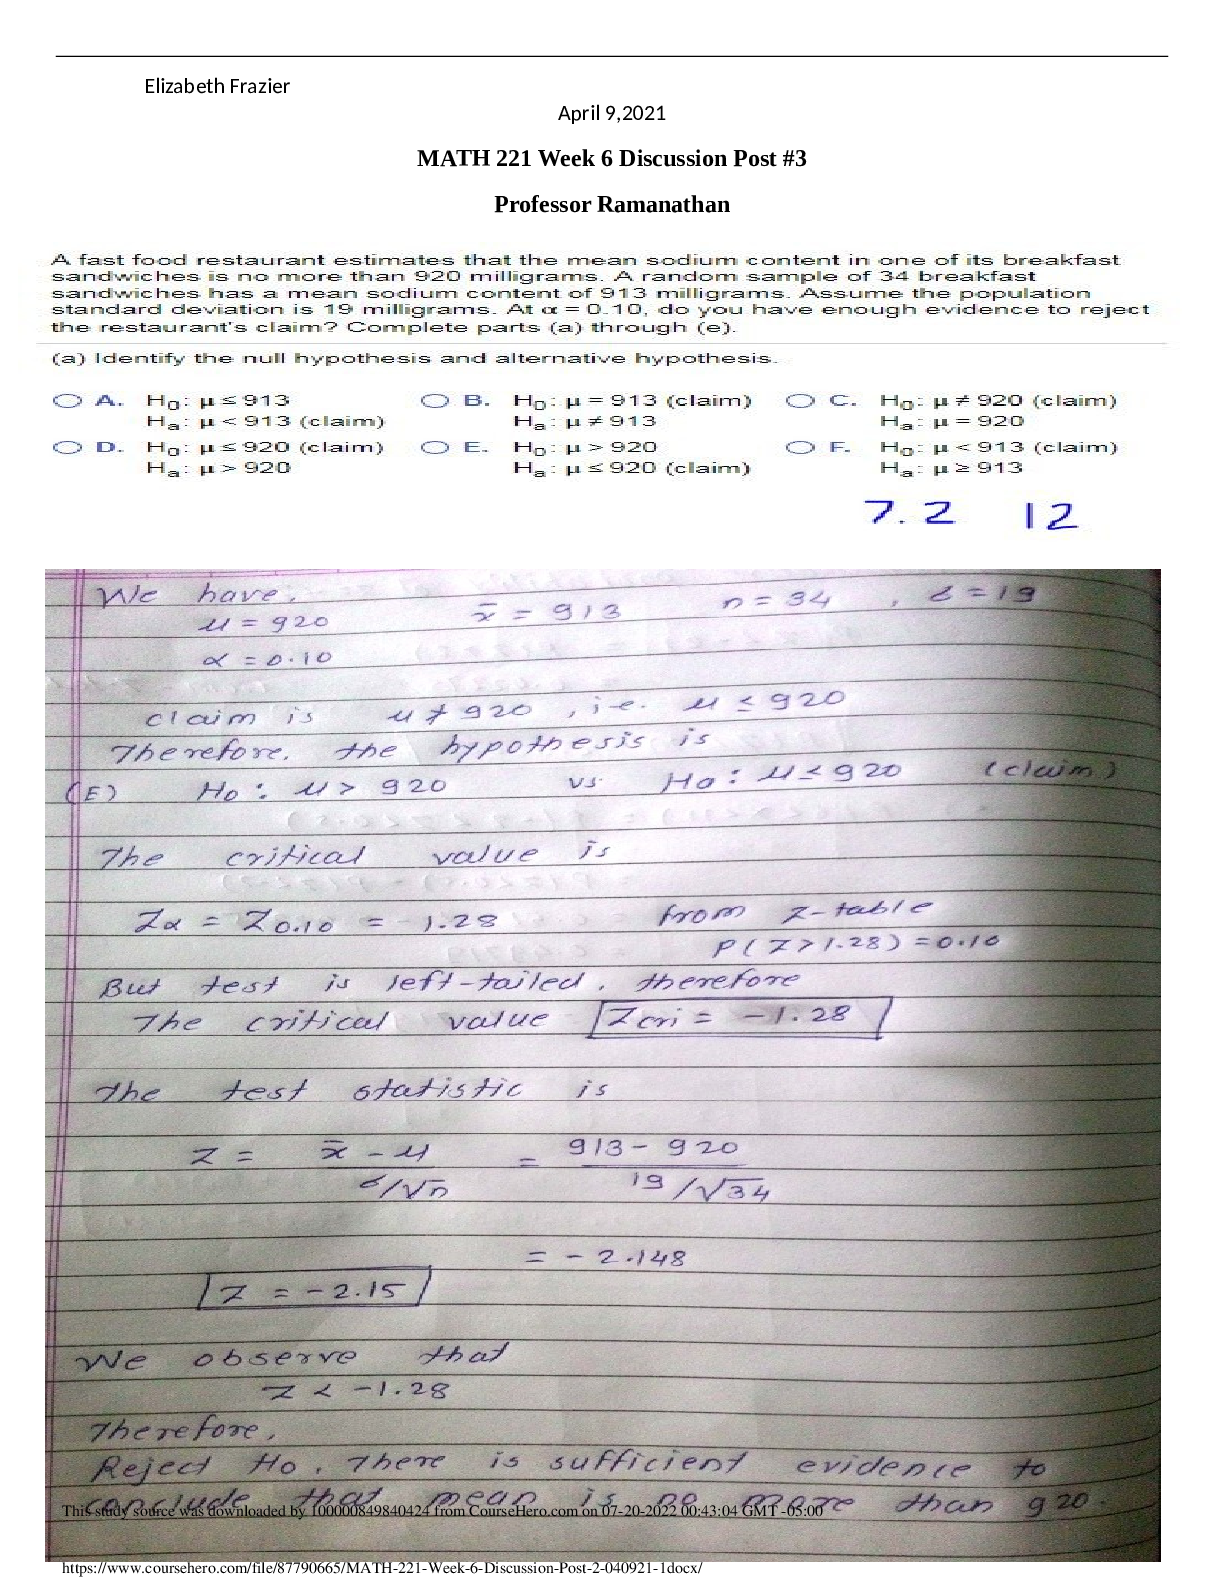 Elizabeth Frazier
April 9,2021
MATH 221 Week 6 Discussion Post #3
Professor Ramanathan
A fast food restaurant estimates that the mean sodium content in one of its breakfast
sandwiches is no more than 920 milligrams. A random sample of 34 breakfast
sandwiches has a mean sodium content of 913 milligrams. Assume the population
standard deviation is 19 milligrams. At α = 0.10, do you have enough evidence to reject
the restaurant's claim? Complete parts (a) through (e).
(a) Identify the null hypothesis and alternative hypothesis.
A. H₀: μ ≤ 913 B. H₀: μ = 913 (claim) C. H₀: μ ≠ 920 (claim)
Hₐ: μ < 913 (claim) Hₐ: μ ≠ 913 Hₐ: μ = 920
D. H₀: μ ≤ 920 (claim) E. H₀: μ > 920 F. H₀: μ < 913 (claim)
Hₐ: μ > 920 Hₐ: μ ≤ 920 (claim) Hₐ: μ ≥ 913
7.2 12
We have, x̄ = 913 n = 34 , σ = 19
μ = 920
α = 0.10
claim is μ ≯ 920 , i.e. μ ≤ 920
Therefore, the hypothesis is
(E) Ho : μ > 920 vs. Ha : μ ≤ 920 (claim)
The critical value is
Zα = Z0.10 = -1.28 from z-table
P(Z>1.28) = 0.10
But test is left-tailed, therefore
The critical value Zcri = -1.28
The test statistic is
Z = x̄ - μ / σ/√n = 913 - 920 / 19/√34
= - 2.148
Z = -2.15
We observe that
Z < -1.28
Therefore,
Reject Ho. There is sufficient evidence to
conclude that mean is no more than 920.
This study source was downloaded by 100000849840424 from CourseHero.com on 07-20-2022 00:43:04 GMT -05:00
https://www.coursehero.com/file/87790665/MATH-221-Week-6-Discussion-Post-2-040921-1docx/